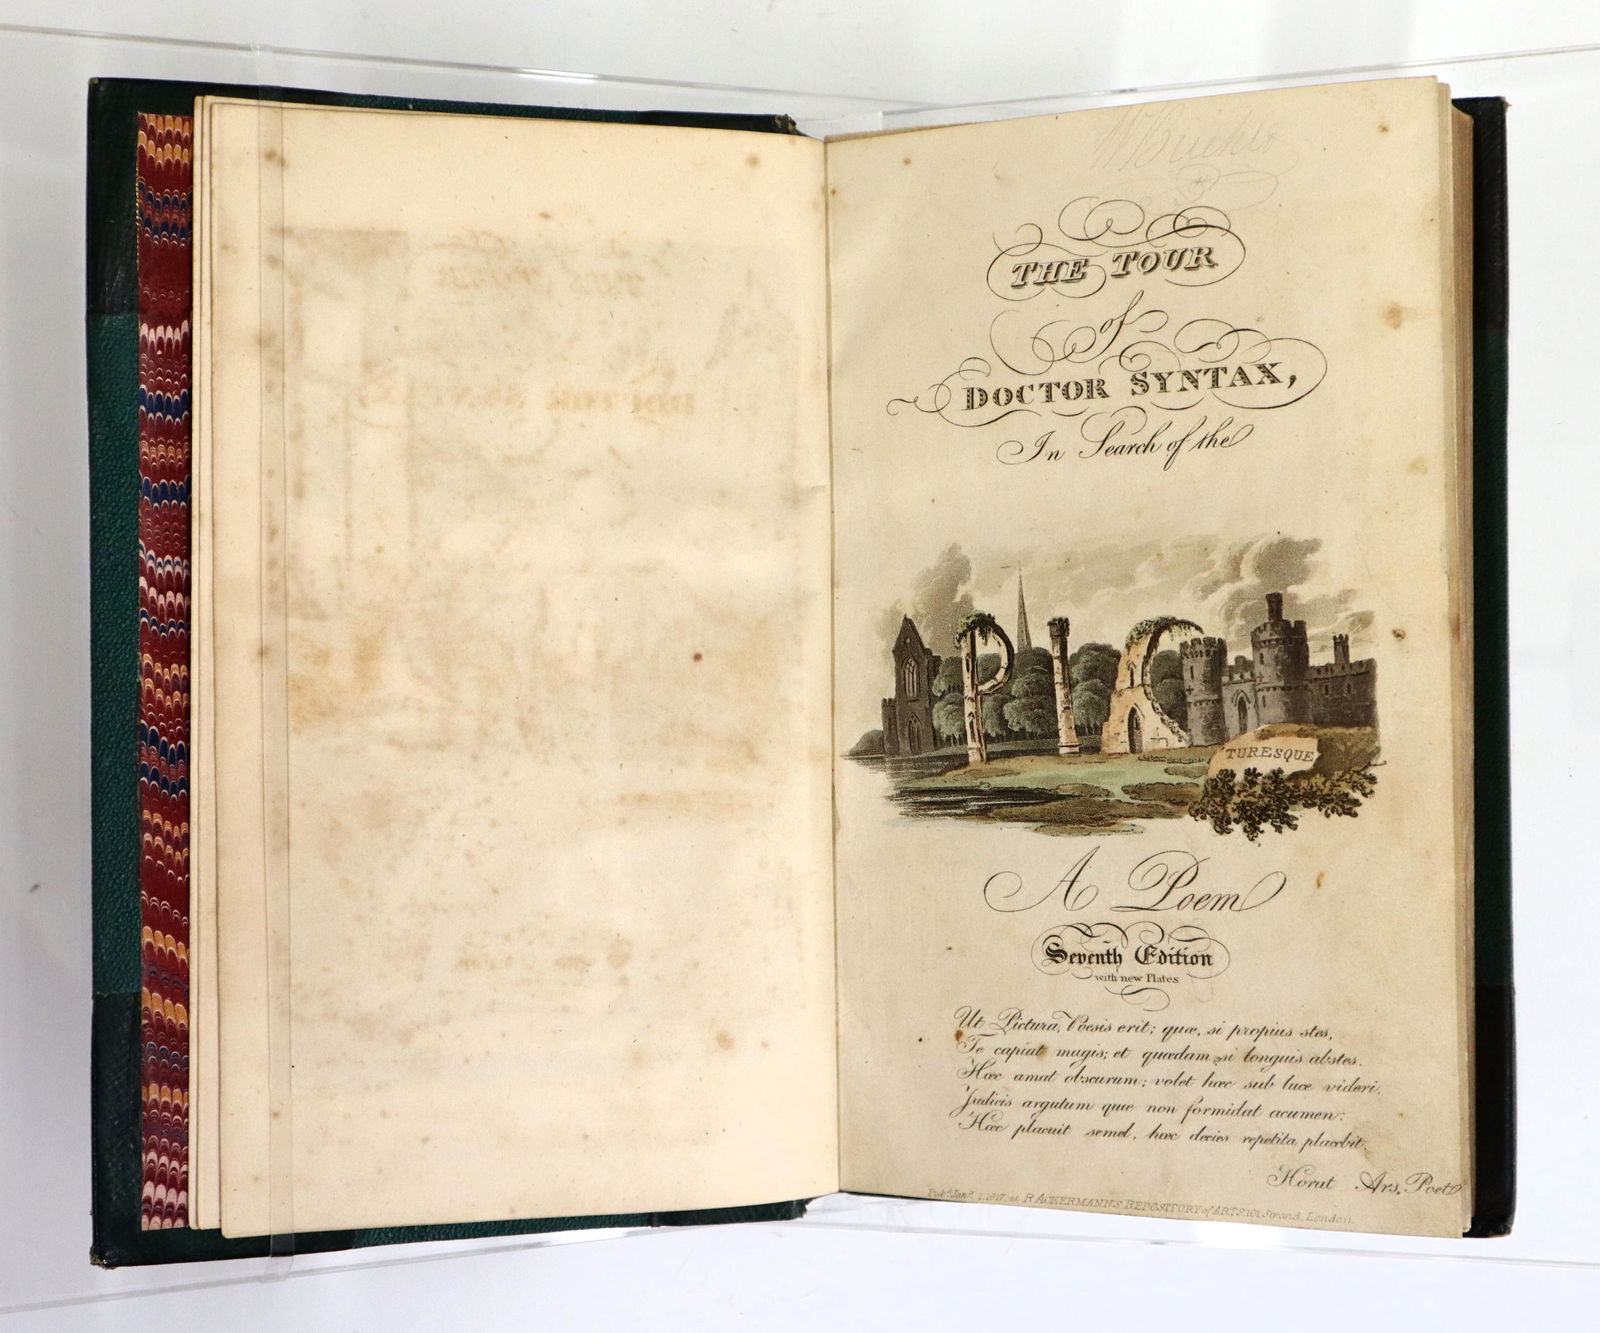 THE TOUR
of
DOCTOR SYNTAX,
In Search of the
PIC
TURESQUE
A Poem
Seventh Edition
with new Plates
Ut Pictura, Poesis erit; quæ, si propius stes,
Te capiat magis; et quædam si longuis abstes.
Hæc amat obscurum; volet hæc sub luce videri,
Judicis argutum quæ non formidat acumen:
Hæc placuit semel, hæc decies repetita placebit.
Horat Ars. Poet
Pub.d Jan.y 1, 1817, at R. ACKERMANN'S REPOSITORY of ARTS 101 Strand, London.